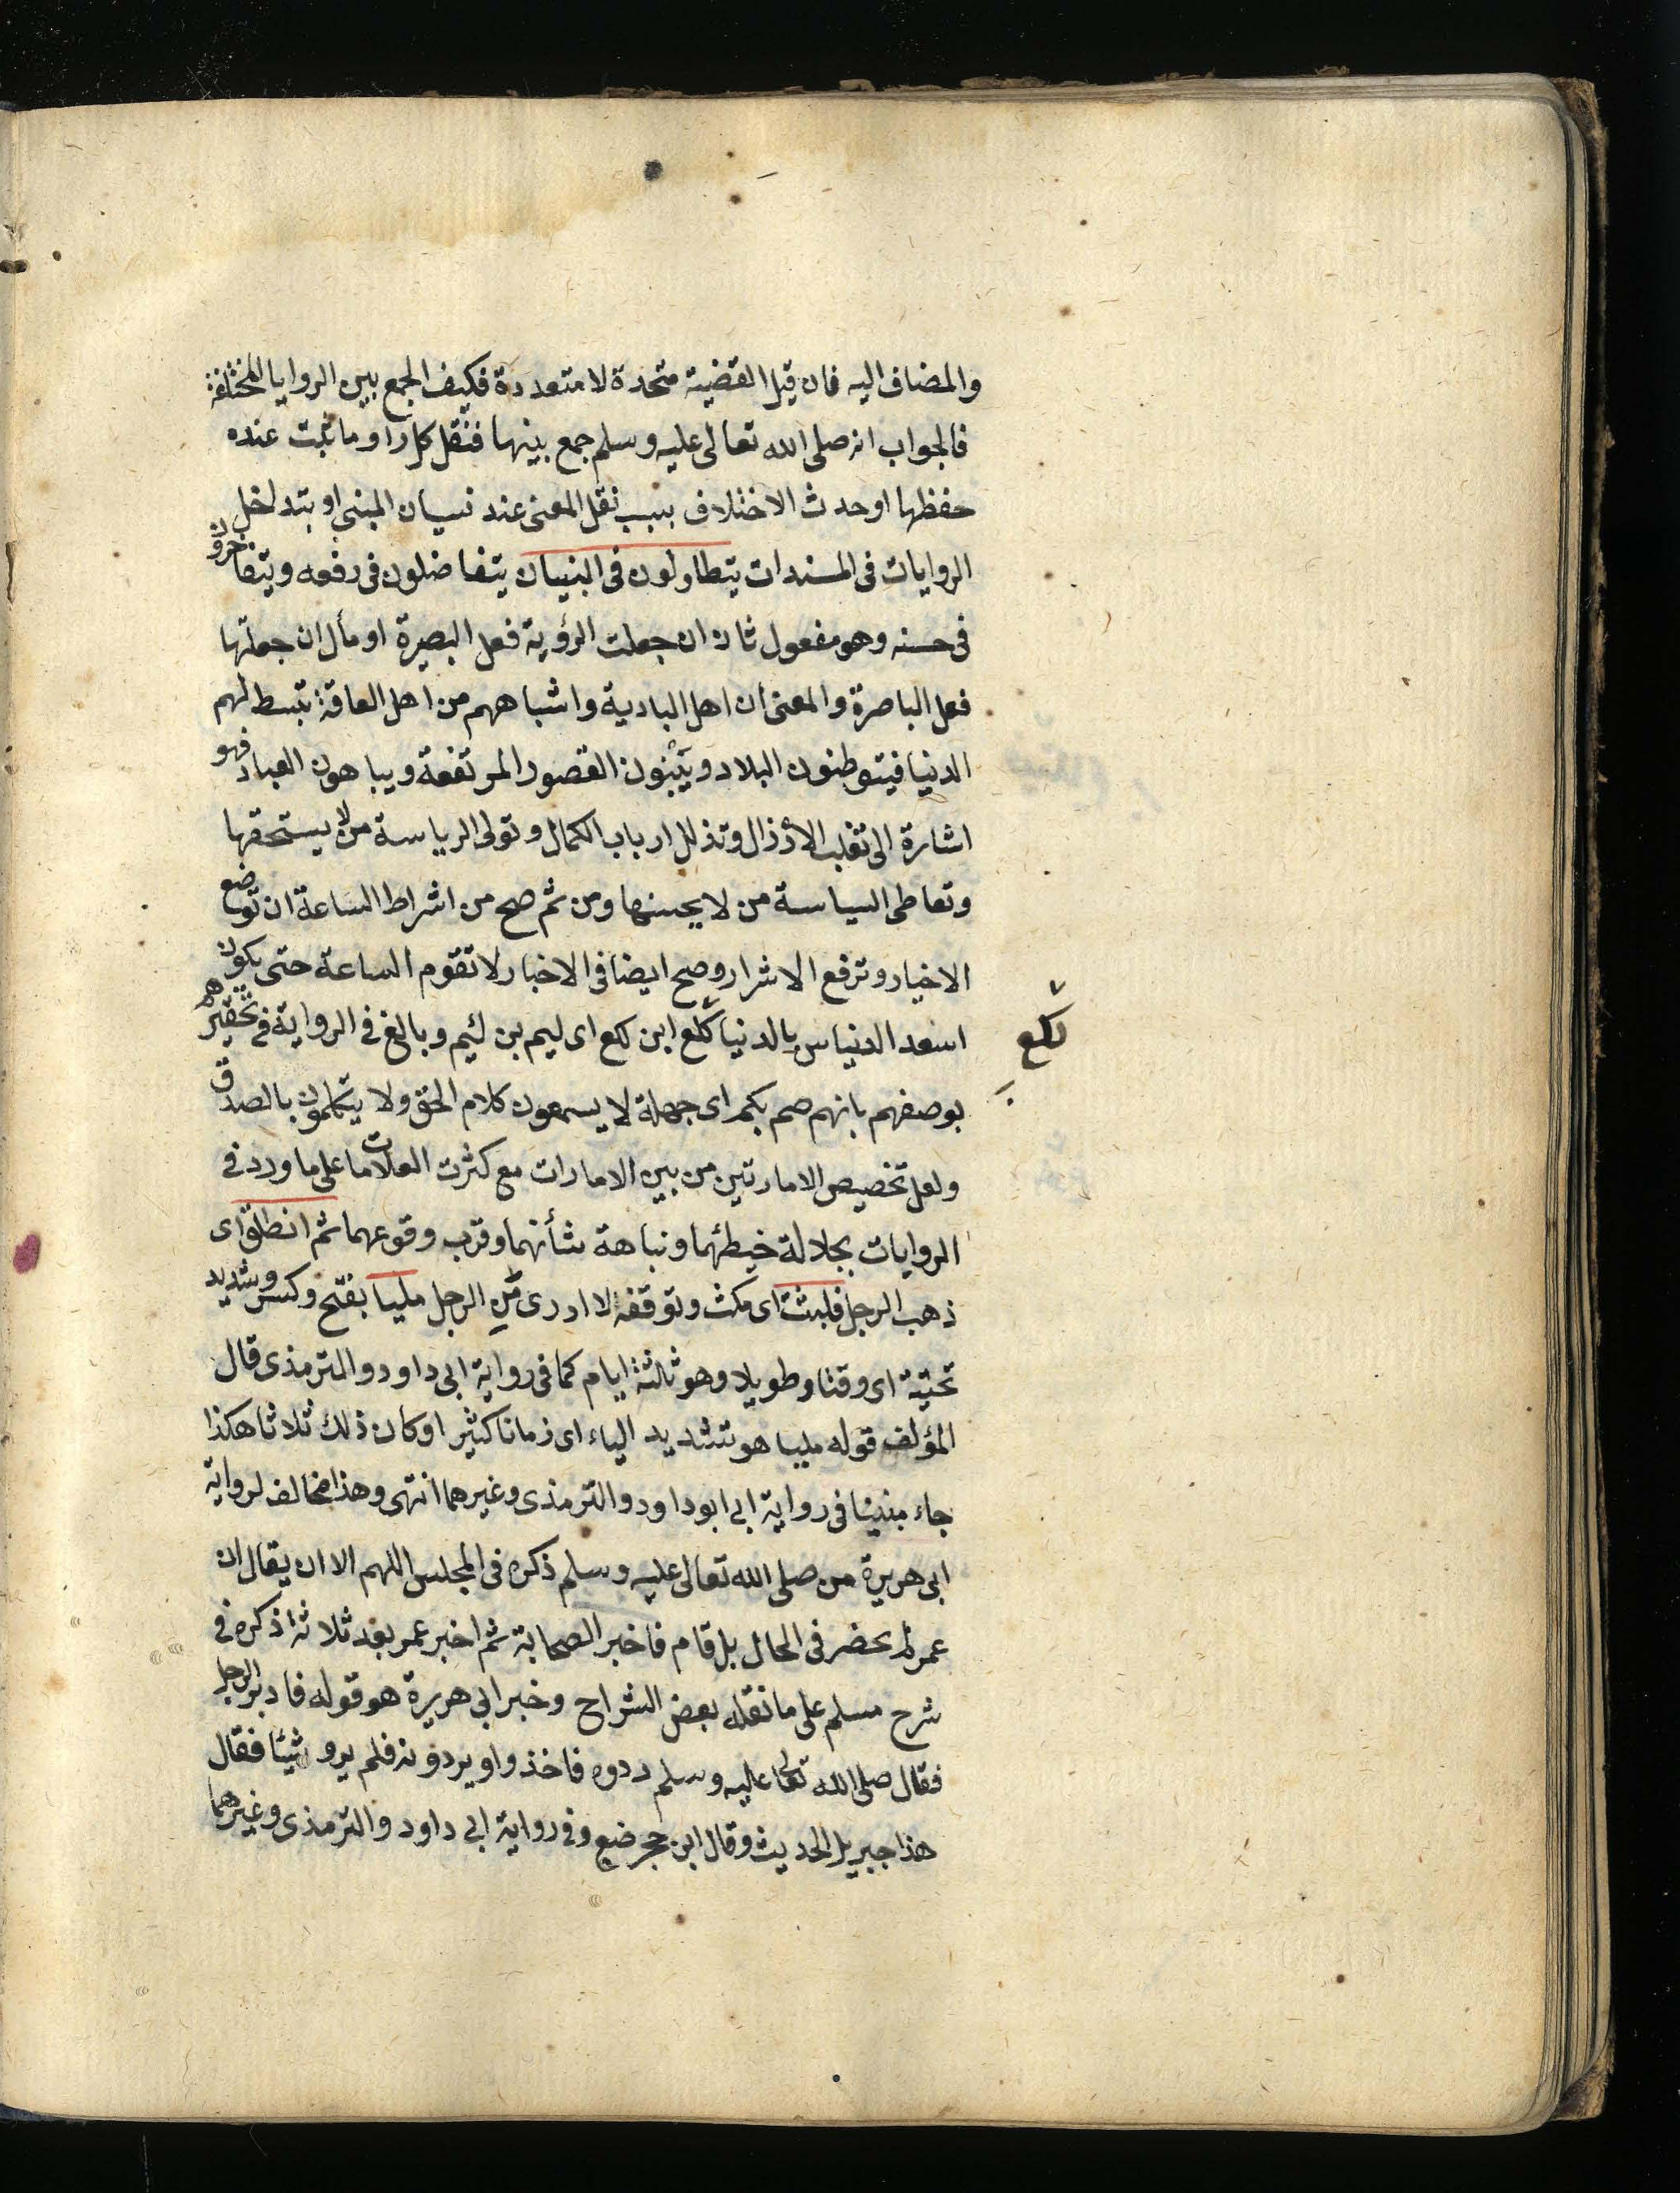 والمضاف اليه فان قيل القضية متحدة لا متعددة فكيف الجمع بين الروايا المختلفة
فالجواب انه صلى الله تعالى عليه وسلم جمع بينها فنقل كل راو ما ثبت عنده
حفظها او حدث الاختلاف بسبب نقل المعنى عند نسيان المبنى او بتداخل
الروايات فى المسندات يتطاولون فى البنيان يتفاضلون فى رفعه ويتفاخرون
فى حسنه وهو مفعول ثان ان جعلت الرؤية فعل البصيرة او مأل ان جعلتها
فعل الباصرة والمعنى ان اهل البادية واشباههم من اهل الفاقة تبسط لهم
الدنيا فيتوطنون البلاد ويبنون القصور المرتفعة ويباهون العباد فهو
اشارة الى تغلب الأرذال وتذلل ارباب الكمال وتولى الرياسة من لا يستحقها
وتعاطى السياسة من لا يحسنها ومن ثم صح من اشراط الساعة ان توضع
الاخيار وترفع الاشرار وصح ايضا فى الاخبار لا تقوم الساعة حتى يكون
اسعد الناس بالدنيا لكع ابن لكع اى ليم بن لئيم وبالغ فى الرواية فى تحقيرهم
لكع
بوصفهم بانهم صم بكم اى جهلة لا يسمعون كلام الحق ولا يتكلمون بالصدق
ولعل تخصيص الامارتين من بين الامارات مع كثرت العلامات على ما ورد فى
الروايات بجلالة خيطئهما ونباهة شأنهما وقرب وقوعهما ثم انطلق اى
ذهب الرجل فلبثت اى مكث وتوقفه لا ادرى من الرجل مليا بفتح وكسر وتشديد
تحتية اى وقتا وطويلا وهو ثلثة ايام كما فى رواية ابى داود والترمذى قال
المؤلف قوله مليا هو تشديد الياء اى زمانا كثيرا وكان ذلك ثلاثا هكذا
جاء مبنيا فى رواية ابى ابو داود والترمذى وغيرهما انتهى وهذا مخالف لرواية
ابى هريرة من صلى الله تعالى عليه وسلم ذكره فى المجلس اللهم الا ان يقال ان
عمر لم يحضر فى الحال بل قام فاخبر الصحابة ثم اخبر عمر بعد ثلاثة ذكره فى
شرح مسلم على ما نقله بعض الشراح وخبر ابى هريرة هو قوله فادبر الرجل
فقال صلى الله تعالى عليه وسلم ردوه فاخذوا ويردونه فلم يرو شيئا فقال
هذا جبريل الحديث وقال ابن حجر ضع وفى رواية ابى داود والترمذى وغيرهما